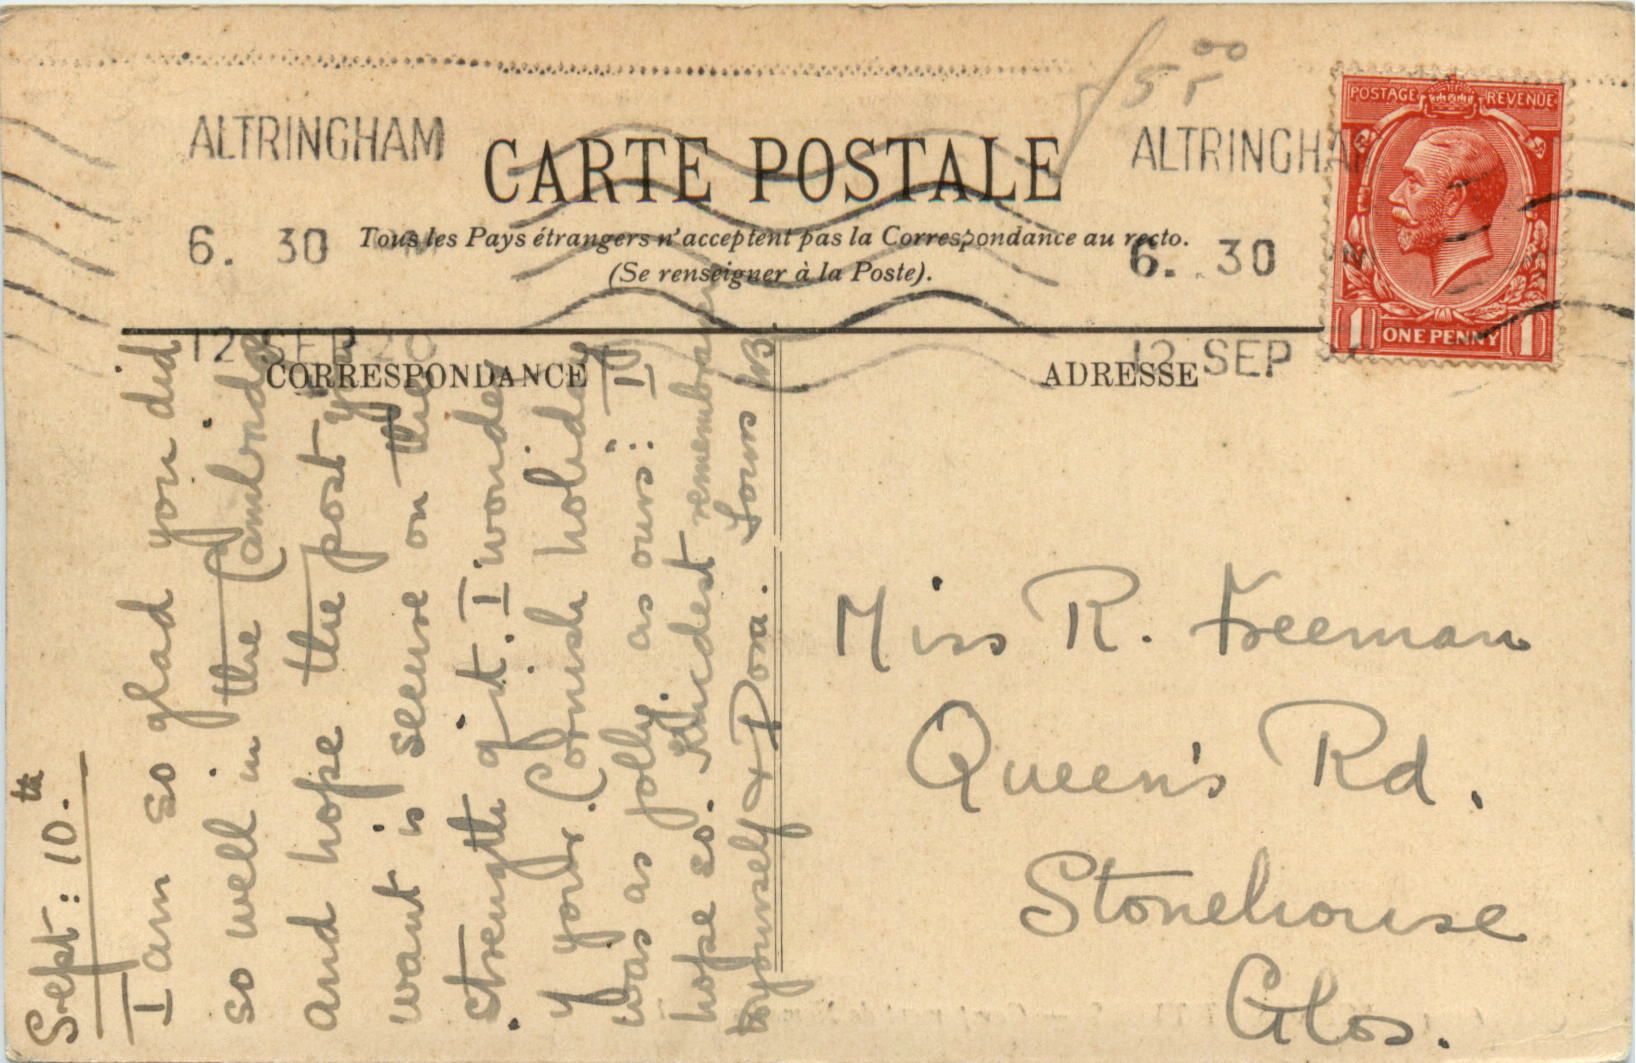 ALTRINGHAM
6. 30
12 SEP 20
CARTE POSTALE
Tous les Pays étrangers n'acceptent pas la Correspondance au recto.
(Se renseigner à la Poste).
ALTRINGHAM
6. 30
12 SEP
POSTAGE REVENUE
1 ONE PENNY 1
CORRESPONDANCE
ADRESSE
Sept: 10.th
I am so glad you did
so well in the Cambridge
and hope the post you
want is secure on the
strength of it. I wonder
if your Cornish holiday
was as jolly as ours: I
hope so. Kindest remembrances
to yourself & Dora.
Miss R. Freeman
Queen's Rd.
Stonehouse
Glos.